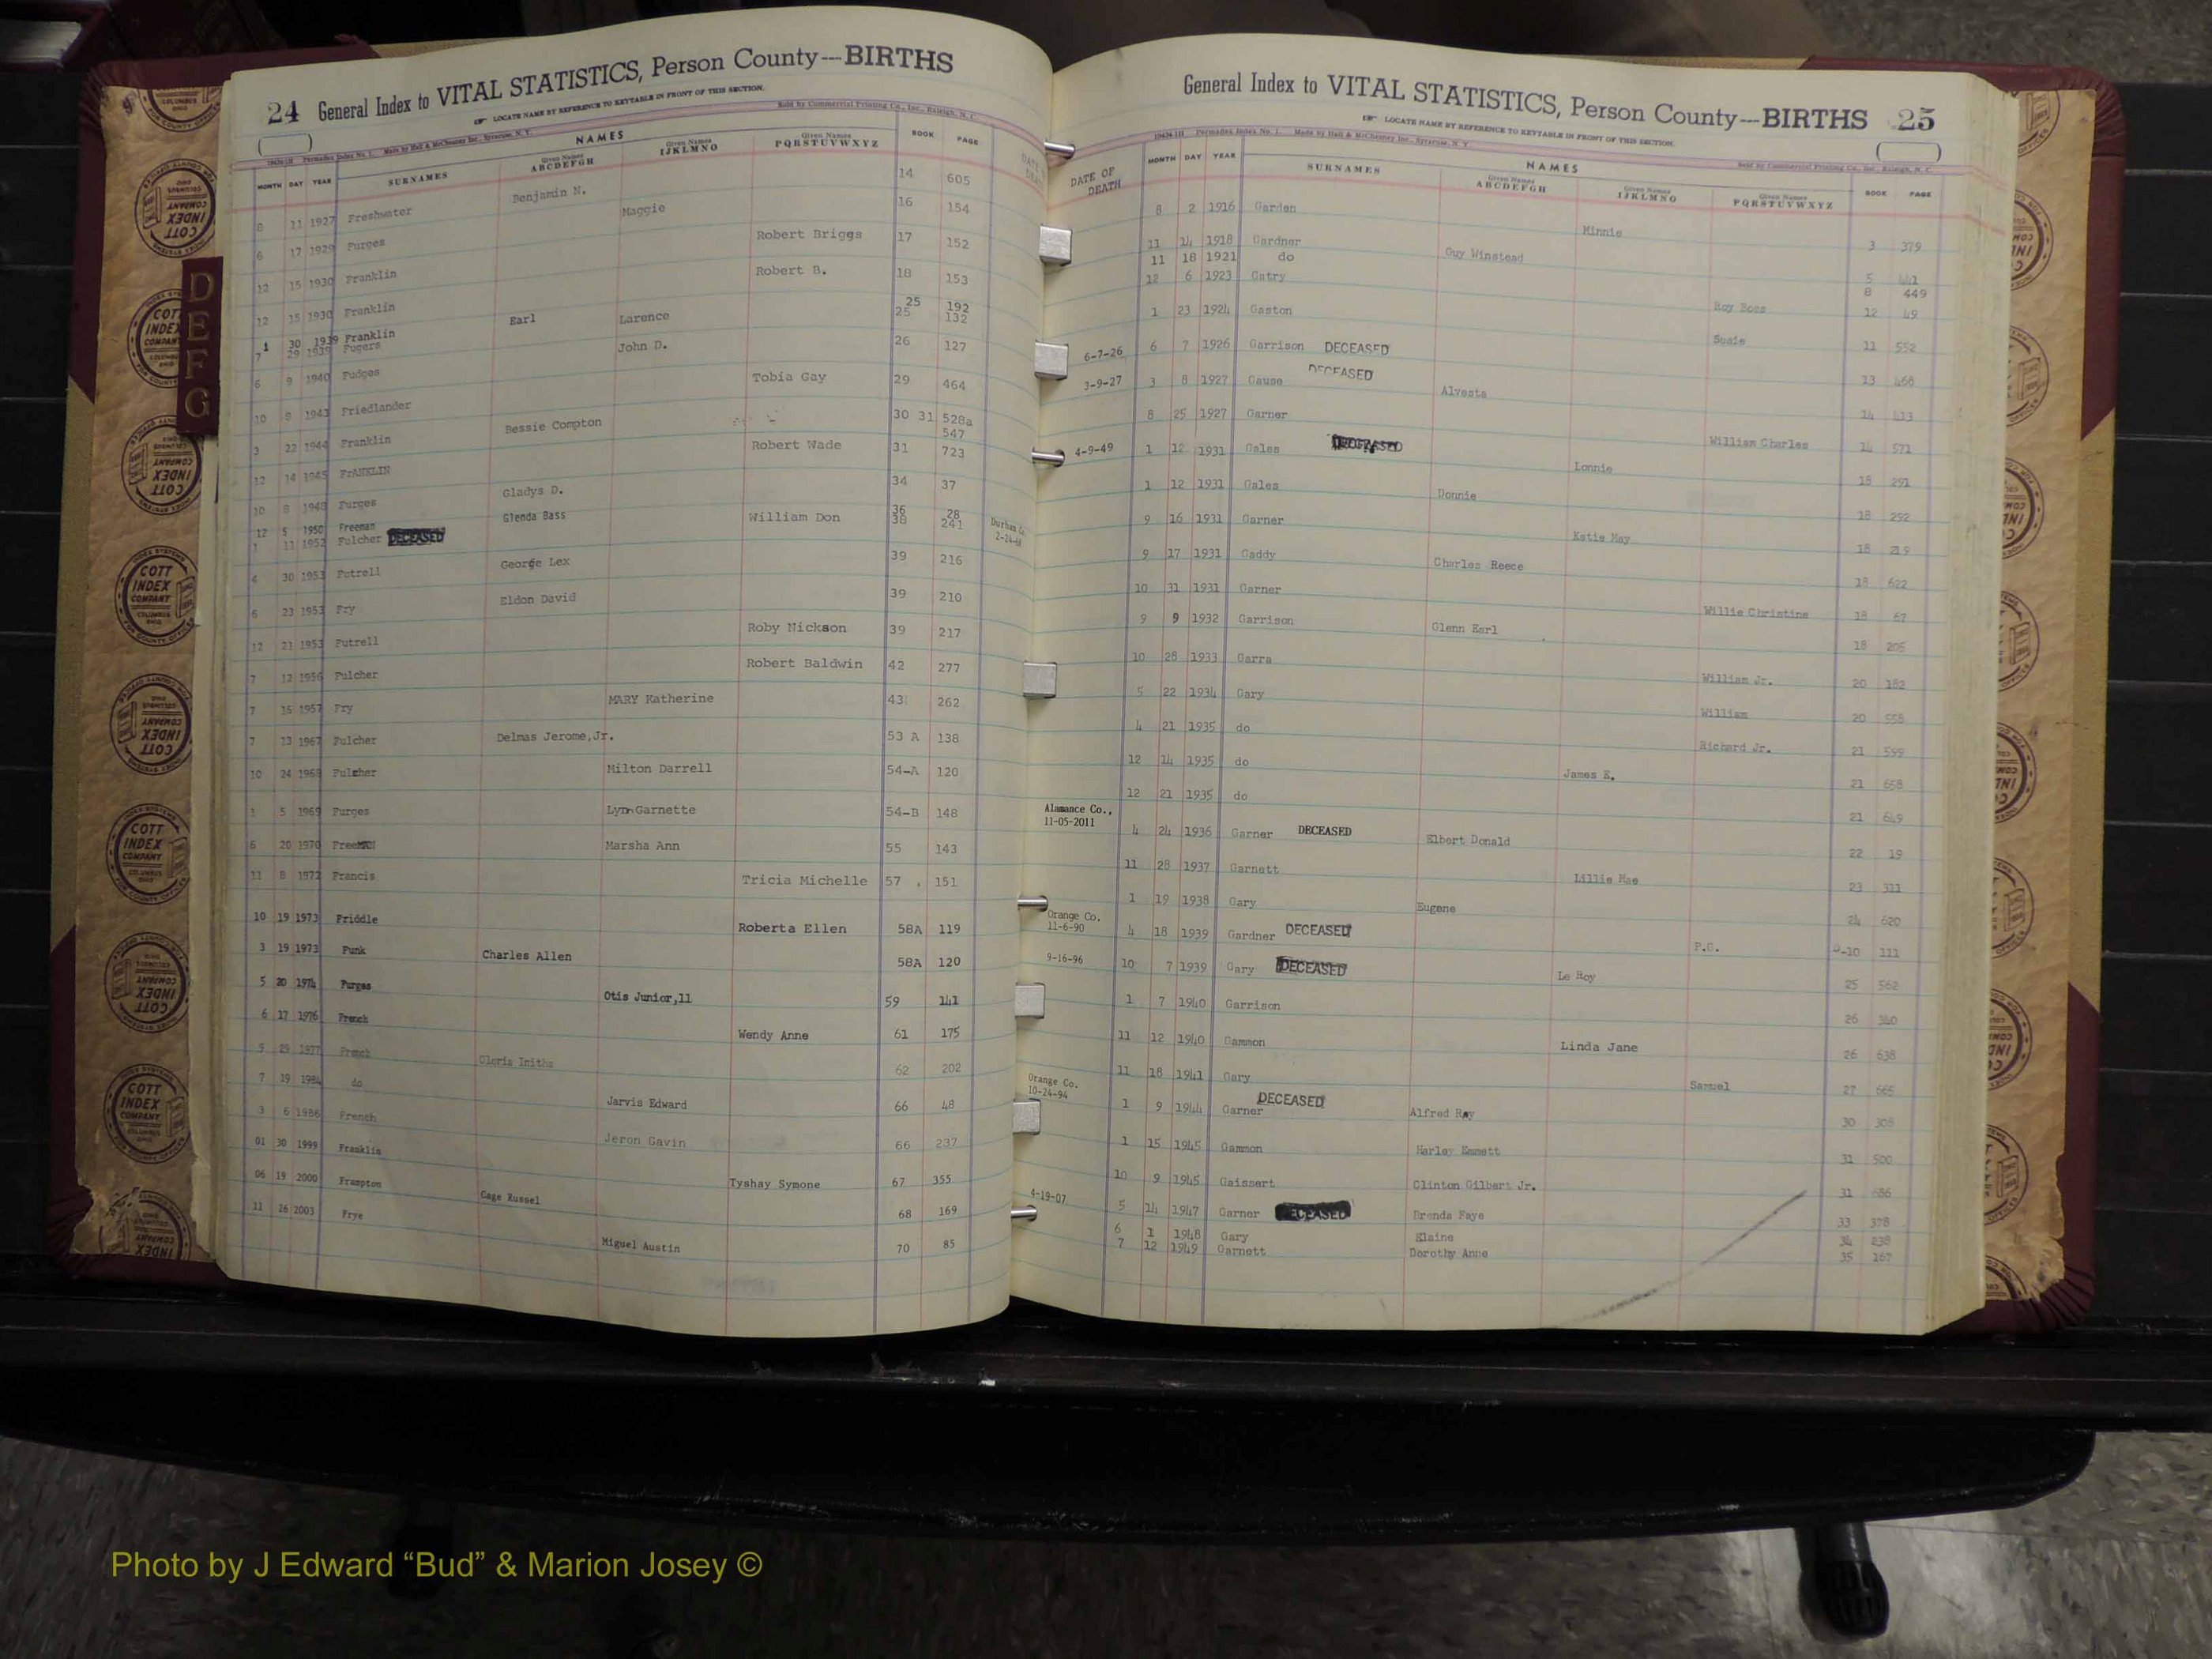 24 General Index to VITAL STATISTICS, Person County---BIRTHS
LOCATE NAME BY REFERENCE TO KEYTABLE IN FRONT OF THIS SECTION.
Sold by Commercial Printing Co., Inc., Raleigh, N. C.
NAMES
MONTH DAY YEAR SURNAMES Given Names ABCDEFGH Given Names IJKLMNO Given Names PQRSTUVWXYZ BOOK PAGE
8 11 1927 Freshwater Benjamin N. 14 605
6 17 1929 Furges Maggie 16 154
12 15 1930 Franklin Robert Briggs 17 152
12 15 1930 Franklin Robert B. 18 153
1 30 1939 Franklin Earl Larence 25 192
7 29 1939 Fugers John D. 25 132
6 9 1940 Fudges 26 127
10 9 1943 Friedlander Tobia Gay 29 464
3 22 1944 Franklin Bessie Compton 30 31 528a 547
12 14 1945 FrANKLIN Robert Wade 31 723
10 8 1948 Furges Gladys D. 34 37
12 5 1950 Freeman Glenda Bass 36 28
1 11 1952 Fulcher DECEASED William Don 38 241 Durham Co.
4 30 1953 Futrell George Lex 39 216
6 23 1953 Fry Eldon David 39 210
12 21 1953 Futrell Roby Nickson 39 217
7 12 1956 Fulcher Robert Baldwin 42 277
7 16 1957 Fry MARY Katherine 43 262
7 13 1967 Fulcher Delmas Jerome,Jr. 53 A 138
10 24 1968 Fulcher Milton Darrell 54-A 120
1 5 1969 Furges Lynn Garnette 54-B 148
6 20 1970 Marsha Ann 55 143
11 8 1972 Francis Tricia Michelle 57 151
10 19 1973 Friddle Roberta Ellen 58A 119
3 19 1973 Funk Charles Allen 58A 120
5 20 1974 Furges Otis Junior,11 59 141
6 17 1976 French Wendy Anne 61 175
9 29 1977 French Cloria Initha 62 202
7 19 1984 do Jarvis Edward 66 48
3 6 1986 French Jeron Gavin 66 237
01 30 1999 Franklin Tyshay Symone 67 355
06 19 2000 Frampton Cage Russel 68 169
11 26 2003 Frye Miguel Austin 70 85
General Index to VITAL STATISTICS, Person County---BIRTHS 25
LOCATE NAME BY REFERENCE TO KEYTABLE IN FRONT OF THIS SECTION.
Made by Hall & McChesney Inc., Syracuse, N. Y.
Sold by Commercial Printing Co., Inc., Raleigh, N. C.
NAMES
DATE OF DEATH MONTH DAY YEAR SURNAMES Given Names ABCDEFGH Given Names IJKLMNO Given Names PQRSTUVWXYZ BOOK PAGE
8 2 1916 Garden Minnie 3 379
11 14 1918 Gardner Guy Winstead 5 441
11 18 1921 do 8 449
12 6 1923 Gatry Roy Boss 12 49
1 23 1924 Gaston Susie 11 552
6-7-26 6 7 1926 Garrison DECEASED 13 468
3-9-27 3 8 1927 Gause DECEASED Alvesta 14 413
8 25 1927 Garner William Charles 14 571
4-9-49 1 12 1931 Gales DECEASED Lonnie 18 291
1 12 1931 Gales Donnie 18 292
9 16 1931 Garner Katie May 18 219
9 17 1931 Gaddy Charles Reece 18 622
10 31 1931 Garner Willie Christine 18 67
9 9 1932 Garrison Glenn Earl 18 205
10 28 1933 Garra William Jr. 20 182
5 22 1934 Gary William 20 558
4 21 1935 do Richard Jr. 21 599
12 14 1935 do James E. 21 658
12 21 1935 do 21 649
Alamance Co., 11-05-2011 4 24 1936 Garner DECEASED Elbert Donald 22 19
11 28 1937 Garnett Lillie Mae 23 311
1 19 1938 Gary Eugene 24 620
Orange Co. 11-6-90 4 18 1939 Gardner DECEASED P.G. D-10 111
9-16-96 10 7 1939 Gary DECEASED Le Roy 25 562
1 7 1940 Garrison 26 340
11 12 1940 Gammon Linda Jane 26 638
11 18 1941 Gary Samuel 27 665
Orange Co. 10-24-94 1 9 1944 Garner DECEASED Alfred Ray 30 308
1 15 1945 Gammon Harley Emmett 31 500
10 9 1945 Gaissert Clinton Gilbert Jr. 31 686
4-19-07 5 14 1947 Garner DECEASED Brenda Faye 33 378
6 1 1948 Gary Elaine 34 238
7 12 1949 Garnett Dorothy Anne 35 167
D
E
F
G
COTT INDEX COMPANY COLUMBUS OHIO
FOR COUNTY OFFICES
Photo by J Edward “Bud” & Marion Josey ©